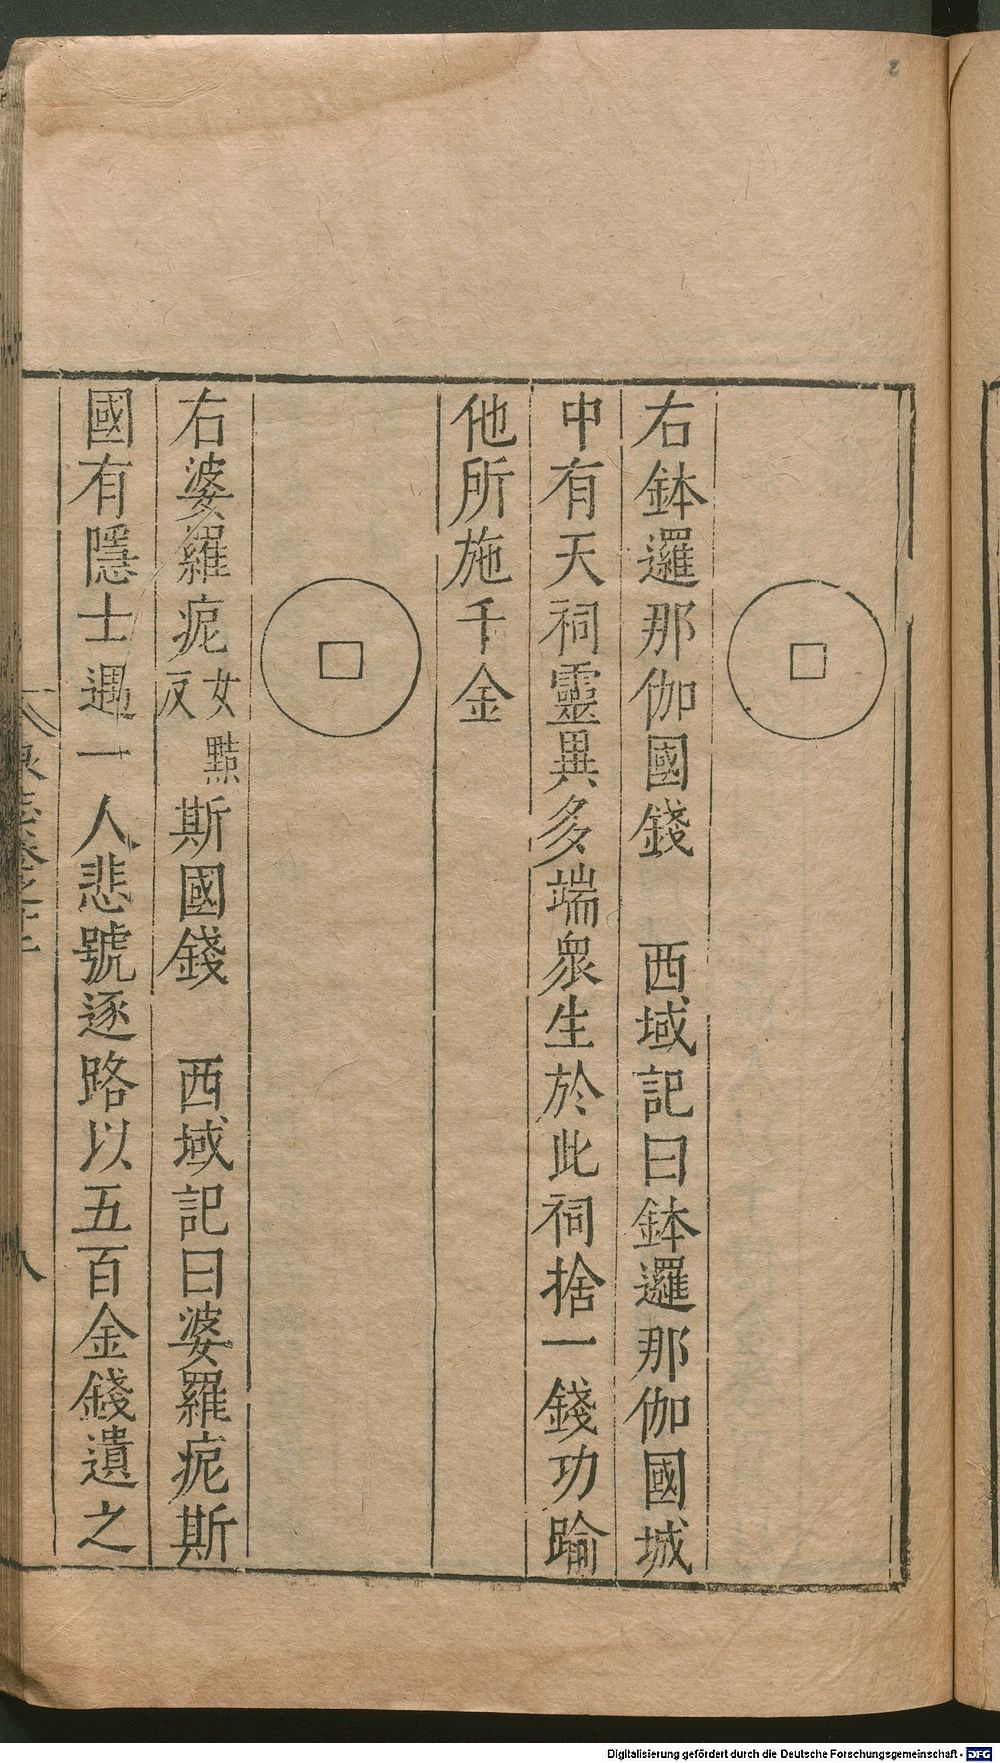 右鉢邏那伽國錢　西域記曰鉢邏那伽國城
中有天祠靈異多端衆生於此祠捨一錢功踰
他所施千金
右婆羅痆女黠反斯國錢　西域記曰婆羅痆斯
國有隱士遇一人悲號逐路以五百金錢遺之
八
Digitalisierung gefördert durch die Deutsche Forschungsgemeinschaft - DFG